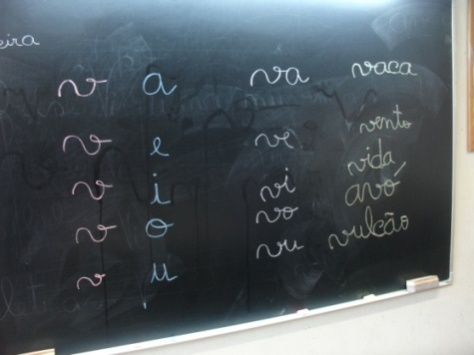 eira
v a va vaca
v e ve vento
v i vi vida
v o vo avó
v u vu vulcão